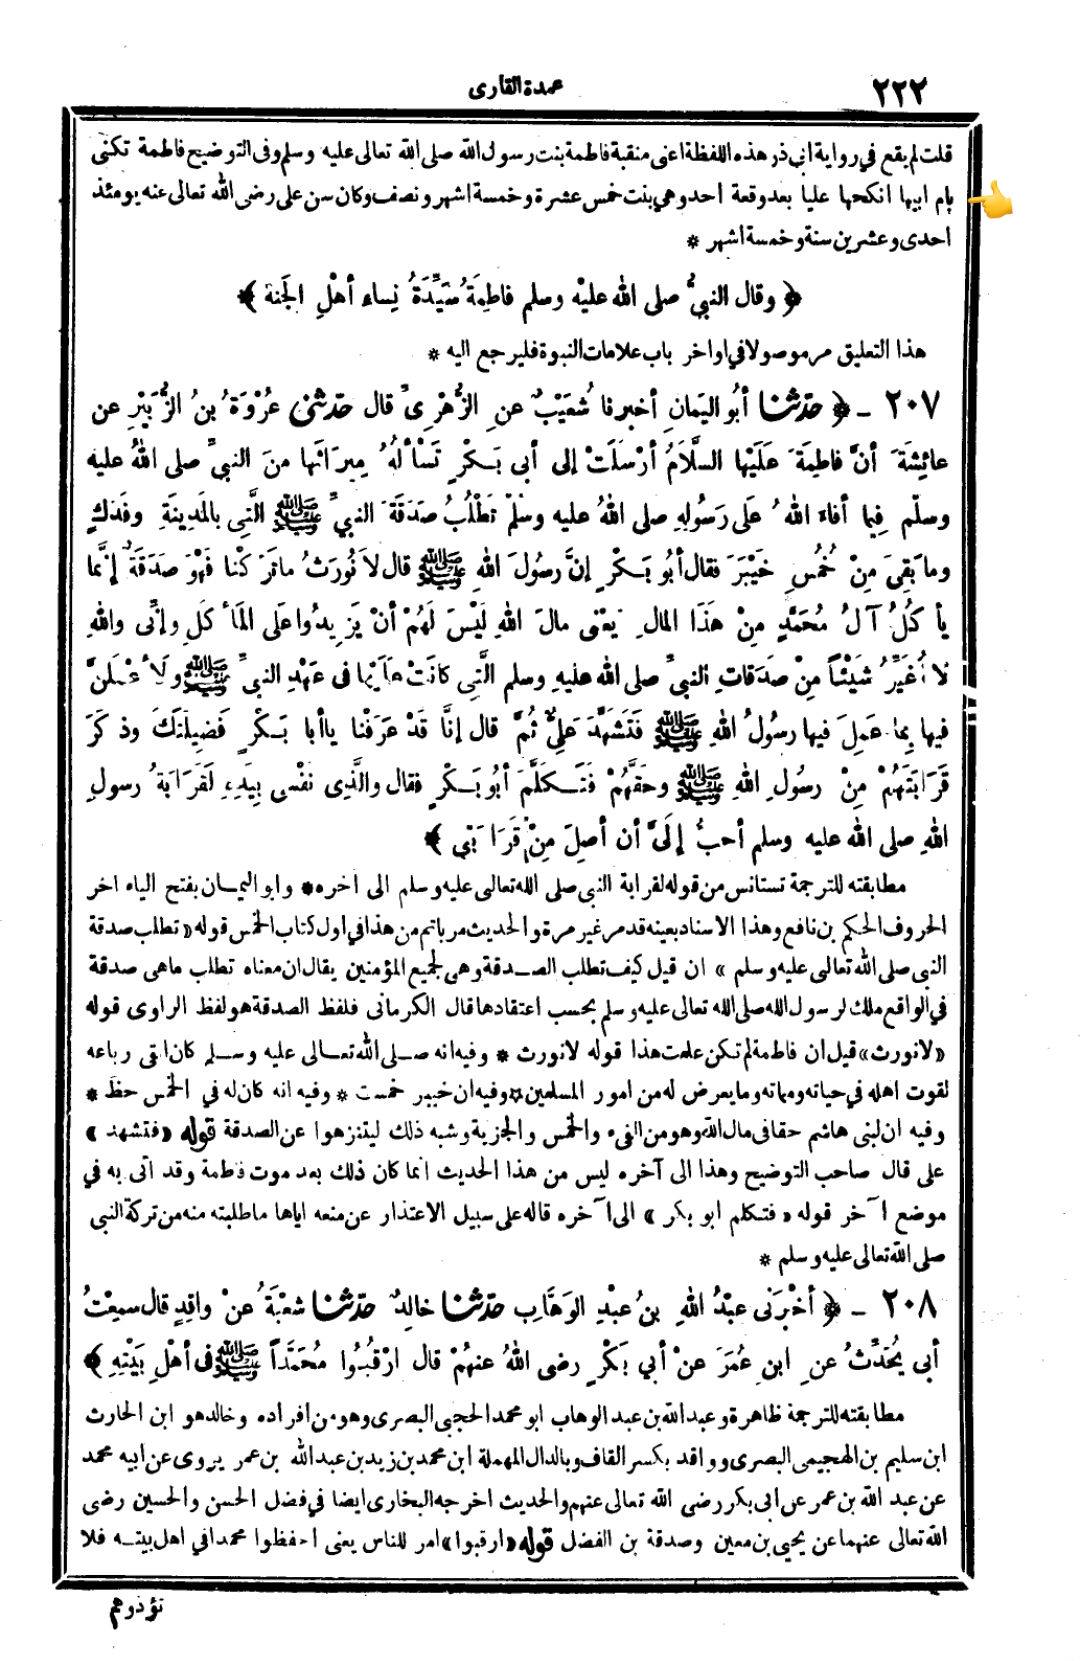 ٢٢٢
عمدة القارى
قلت لم يقع في رواية ابي ذر هذه اللفظة اعنى منقبة فاطمة بنت رسول الله صلى الله تعالى عليه وسلم وفى التوضيح فاطمة تكنى
بام ابيها انكحها عليا بعد وقعة احد وهي بنت خمس عشرة وخمسة اشهر ونصف وكان سن على رضى الله تعالى عنه يومئذ
احدى وعشرين سنة وخمسة اشهر *
﴿ وقال النبيُّ صلى الله عليْه وسلم فاطِمَةُ سَيِّدَةُ نِساء أهْلِ الجَنة ﴾
هذا التعليق مر موصولا في اواخر باب علامات النبوة فليرجع اليه *
٢٠٧ ـ ﴿ حدّثنا أبُو اليَمانِ أخبرنا شُعَيْبٌ عنِ الزُّهْرِىِّ قال حدّثنى عُرْوَةُ بنُ الزُّبَيْرِ عن
عائِشَةَ أنَّ فاطِمَةَ عَلَيْها السَّلاَمُ أرْسَلَتْ إلى أبى بَكْرٍ تَسْأَلُهُ مِيرَاثَها منَ النبيِّ صلى اللهُ عليه
وسلّم فِيما أفاءَ اللهُ عَلَى رَسُولِهِ صلى اللهُ عليه وسلّمَ تَطْلُبُ صَدَقَةَ النبيِّ ﷺ الَّتِى بالمَدِينَةِ وفَدَكٍ
وما بَقِىَ مِنْ خُمُسِ خَيْبَرَ فقال أبُو بَكْرٍ إنَّ رسُولَ اللهِ ﷺ قال لاَ نُورَثُ ما تَرَكْنا فَهْوَ صَدَقَةٌ إنَّما
يأْكُلُ آلُ مُحَمَّدٍ مِنْ هَذَا المَالِ يَعْنِى مالَ اللهِ لَيْسَ لَهُمْ أنْ يَزِيدُوا عَلَى المَأْكَلِ وإنِّى واللهِ
لا أُغَيِّرُ شَيْئًا مِنْ صَدَقاتِ النبيِّ صلى الله عليهِ وسلم الَّتِى كانَتْ عَلَيْها فى عَهْدِ النبيِّ ﷺ ولَأعْمَلَنَّ
فيها بِما عَمِلَ فيها رسُولُ اللهِ ﷺ فَتَشَهَّدَ عَلِيٌّ ثُمَّ قال إنَّا قَدْ عَرَفْنا يا أبا بَكْرٍ فَضِيلَتَكَ وذكَرَ
قَرَابَتَهُمْ مِنْ رسُولِ اللهِ ﷺ وحَقَّهُمْ فَتَكَلَّمَ أبُو بَكْرٍ فقال والَّذِى نفْسِى بِيَدِهِ لَقَرَابَةُ رسولِ
اللهِ صلى الله عليه وسلم أحبُّ إلَىَّ أن أصِلَ مِنْ قَرَابَتِي ﴾
مطابقته للترجمة تستانس من قوله لقرابة النبي صلى الله تعالى عليه وسلم الى آخره * وابو اليمان بفتح الياء اخر
الحروف الحكم بن نافع وهذا الاسناد بعينه قد مر غير مرة والحديث مر باتم من هذا في اول كتاب الخمس قوله «تطلب صدقة
النبي صلى الله تعالى عليه وسلم » ان قيل كيف تطلب الصدقة وهى لجميع المؤمنين يقال ان معناه تطلب ماهى صدقة
في الواقع ملك لرسول الله صلى الله تعالى عليه وسلم بحسب اعتقادها قال الكرمانى فلفظ الصدقة هو لفظ الراوى قوله
«لا نورث» قيل ان فاطمة لم تكن علمت هذا قوله لا نورث * وفيه انه صلى الله تعالى عليه وسلم كان ابقى رباعه
لقوت اهله في حياته ومماته وما يعرض له من امور المسلمين * وفيه ان خيبر خمست * وفيه انه كان له في الخمس حظ *
وفيه ان لبنى هاشم حقا فى مال الله وهو من الفىء والخمس والجزية وشبه ذلك ليتنزهوا عن الصدقة قوله «فتشهد »
على قال صاحب التوضيح وهذا الى آخره ليس من هذا الحديث انما كان ذلك بعد موت فاطمة وقد اتى به في
موضع آخر قوله « فتكلم ابو بكر » الى آخره قاله على سبيل الاعتذار عن منعه اياها ما طلبته منه من تركة النبي
صلى الله تعالى عليه وسلم *
٢٠٨ ـ ﴿ أخْبرَنى عبْدُ اللهِ بنُ عبْدِ الوَهَّابِ حدّثنا خالِدٌ حدّثنا شعْبَةُ عنْ واقِدٍ قال سمِعْتُ
أبى يُحَدِّثُ عنِ ابنِ عُمَرَ عنْ أبي بَكْرٍ رضى اللهُ عنهُمْ قال ارْقُبُوا مُحَمَّدًا ﷺ فى أهْلِ بَيْتِهِ ﴾
مطابقته للترجمة ظاهرة وعبد الله بن عبد الوهاب ابو محمد الحجبى البصرى وهو من افراده وخالد هو ابن الحارث
ابن سليم بن الهجيمى البصرى وواقد بكسر القاف وبالدال المهملة ابن محمد بن زيد بن عبد الله بن عمر يروى عن ابيه محمد
عن عبد الله بن عمر عن ابى بكر رضى الله تعالى عنهم والحديث اخرجه البخارى ايضا في فضل الحسن والحسين رضى
الله تعالى عنهما عن يحيى بن معين وصدقة بن الفضل قوله «ارقبوا» امر للناس يعنى احفظوا محمدا في اهل بيته فلا
تؤذوهم